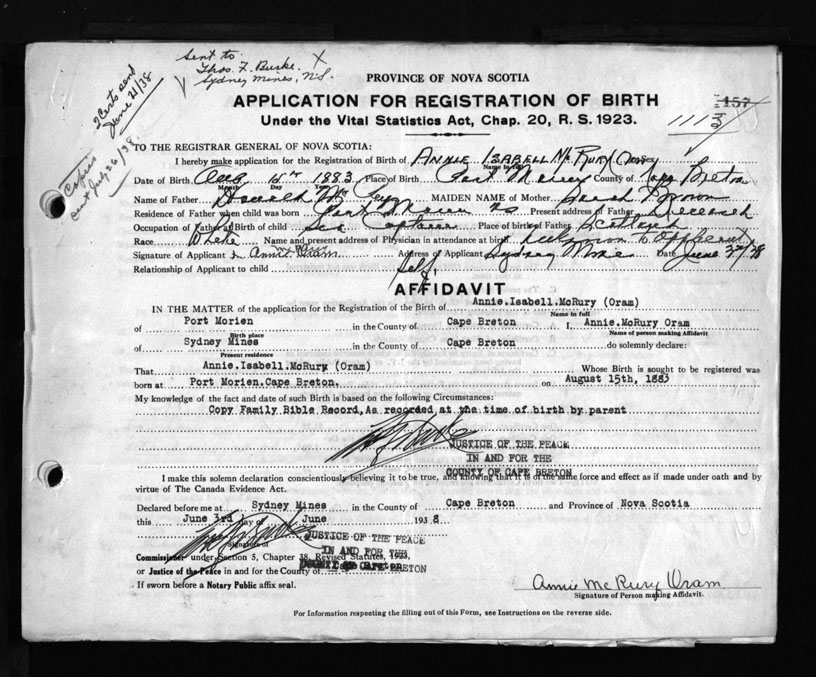 Sent to
Thos. F. Burke. X
Sydney Mines, N.S.
2 Certs send
June 21/38
Copies
sent July 26/38
PROVINCE OF NOVA SCOTIA
APPLICATION FOR REGISTRATION OF BIRTH
Under the Vital Statistics Act, Chap. 20, R. S. 1923.
157
1113
TO THE REGISTRAR GENERAL OF NOVA SCOTIA:
I hereby make application for the Registration of Birth of Annie Isabell McRury (Oram)
Name in full Sex
Date of Birth Aug 15th 1883 Place of Birth Port Morien County of Cape Breton
Month Day Year
Name of Father McRury MAIDEN NAME of Mother Sarah Brown
Residence of Father when child was born Port Morien NS Present address of Father Deceased
Occupation of Father at Birth of child Sea Captain Place of birth of Father Scotland
Race White Name and present address of Physician in attendance at birth unknown to applicant
Signature of Applicant Annie McRury Oram Address of Applicant Sydney Mines Date June 3rd/38
Relationship of Applicant to child Self
AFFIDAVIT
IN THE MATTER of the application for the Registration of the Birth of Annie.Isabell.McRury (Oram)
Name in full
of Port Morien in the County of Cape Breton I, Annie.McRury Oram
Birth place Name of person making Affidavit
of Sydney Mines in the County of Cape Breton do solemnly declare:
Present residence
That Annie.Isabell.McRury (Oram) Whose Birth is sought to be registered was
born at Port Morien.Cape Breton. on August 15th, 1883
My knowledge of the fact and date of such Birth is based on the following Circumstances:
Copy Family Bible Record, As recorded at the time of birth by parent
JUSTICE OF THE PEACE
IN AND FOR THE
COUNTY OF CAPE BRETON
I make this solemn declaration conscientiously believing it to be true, and knowing that it is of the same force and effect as if made under oath and by
virtue of The Canada Evidence Act.
Declared before me at Sydney Mines in the County of Cape Breton and Province of Nova Scotia
this June 3rd day of June 1938
JUSTICE OF THE PEACE
Signature of
IN AND FOR THE
Commissioner under Section 5, Chapter 38, Revised Statutes, 1923,
COUNTY OF CAPE BRETON
or Justice of the Peace in and for the County of Cape Breton
If sworn before a Notary Public affix seal.
Annie McRury Oram
Signature of Person making Affidavit.
For Information respecting the filling out of this Form, see Instructions on the reverse side.